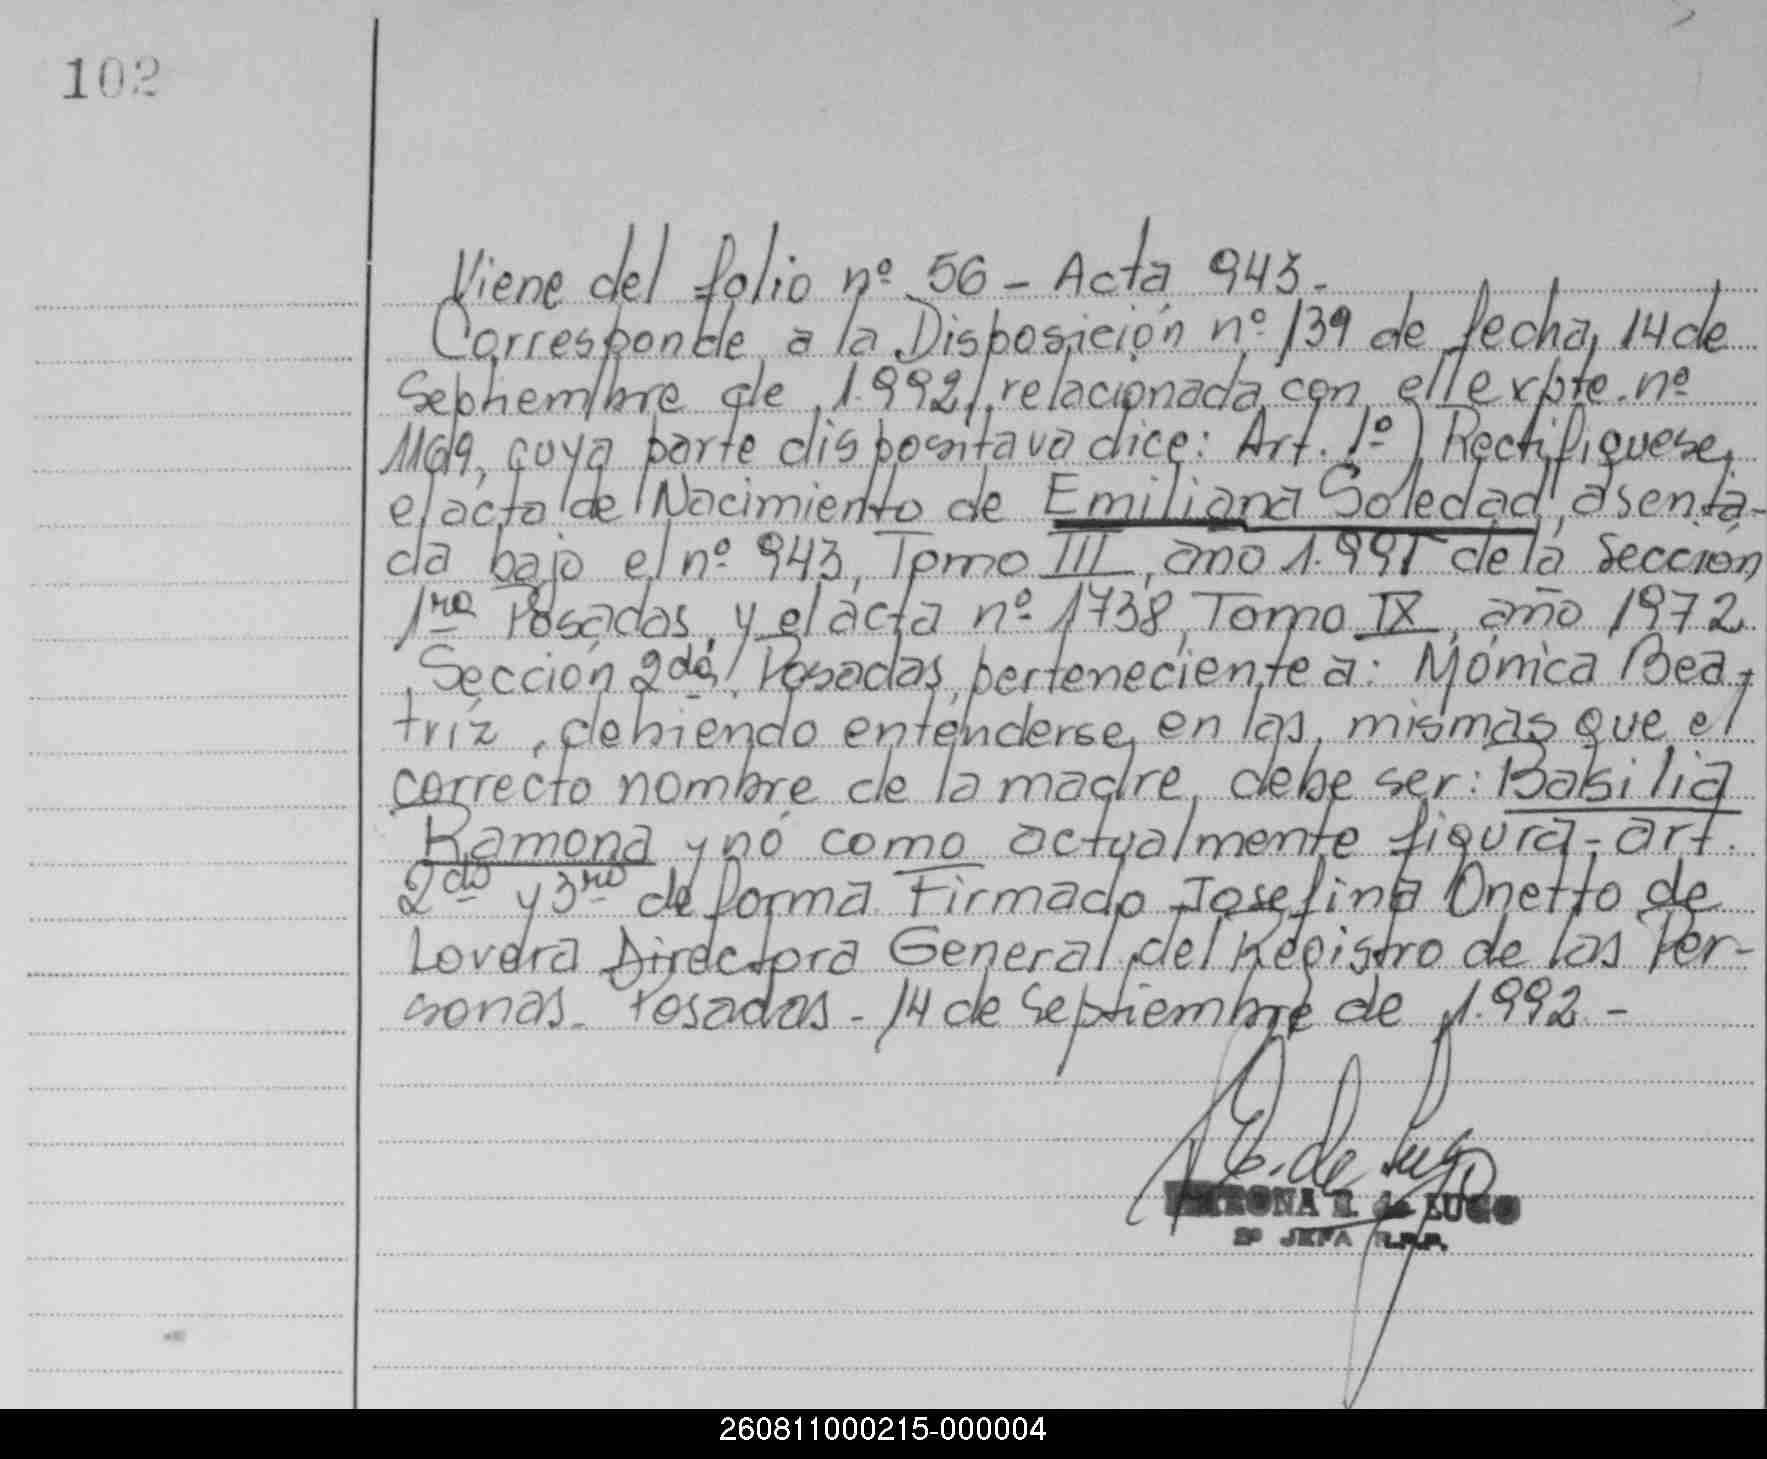 102
Viene del folio nº 56 - Acta 943.-
Corresponde a la Disposición nº 139 de fecha, 14 de
Septiembre de 1.992, relacionada con el expte. nº
1169, cuya parte dispositava dice: Art. 1º) Rectifiquese
el acta de Nacimiento de Emiliana Soledad, asenta-
da bajo el nº 943, Tomo III, año 1.991 de la Sección
1ra Posadas, y el acta nº 1738, Tomo IX, año 1972
Sección 2da. Posadas, perteneciente a: Mónica Bea-
tríz, debiendo entenderse en las mismas que el
correcto nombre de la madre, debe ser: Basilia
Ramona y nó como actualmente figura - art.
2do y 3ro de forma. Firmado Josefina Onetto de
Lovera Directora General del Registro de las Per-
sonas. Posadas - 14 de Septiembre de 1.992.-
de Lugo
de LUGO
2º JEFA R.P.P.
260811000215-000004